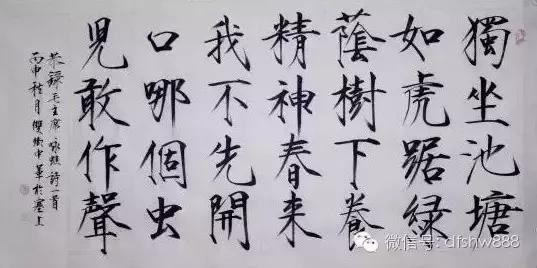 獨坐池塘
如虎踞綠
蔭樹下養
精神春来
我不先開
口哪個虫
児敢作聲
恭録毛主席咏蛙詩一首
丙申月雙中於塞上
微信号: dfshw888